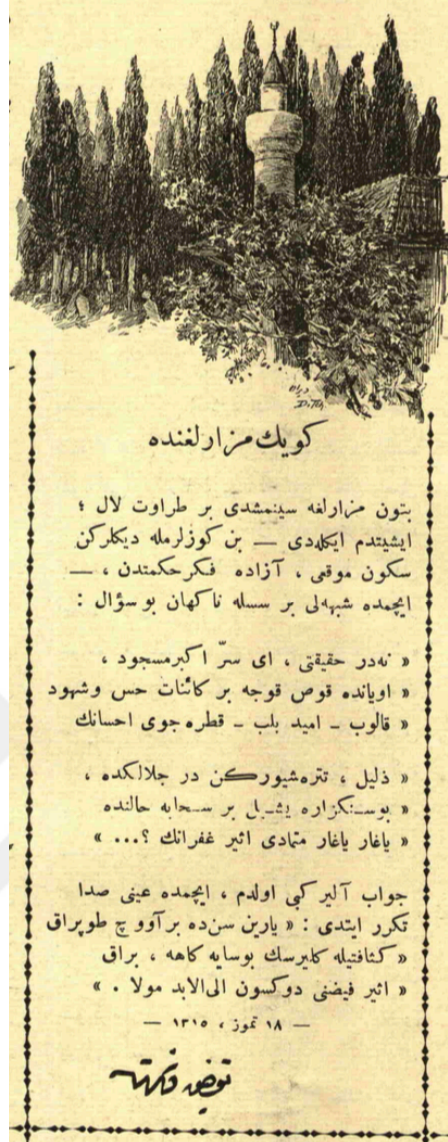 دران
D. Tch
كويك مزارلغنده
بتون مزارلغه سينمشدى بر طراوت لال ؛
ايشيتدم ايكلدى — بن كوزلرمله ديكلركن
سكون موقعى ، آزاده فكر حكمتدن ، —
ايچمده شبهه‌لى بر سسله ناكهان بو سؤال :
« نه‌در حقيقتى ، اى سرّ اكبر مسجود ،
« اويانده قوص قوجه بر كائنات حس وشهود
« قالوب ـ اميد بلب ـ قطره جوى احسانك
« ذليل ، تتره‌شيوركن در جلالكده ،
« بوسنكزاره يشيل بر سحابه حالنده
« ياغار ياغار متمادى اثير غفرانك ؟... »
جواب آلير كبى اولدم ، ايچمده عينى صدا
تكرر ايتدى : « يارين سن‌ده بر آووچ طوپراق
« كثافتيله كليرسك بوسايه كاهه ، براق
« اثير فيضنى دوكسون الى‌الابد مولا . »
— ١٨ تموز ، ١٣١٥ —
توفيق فكرت